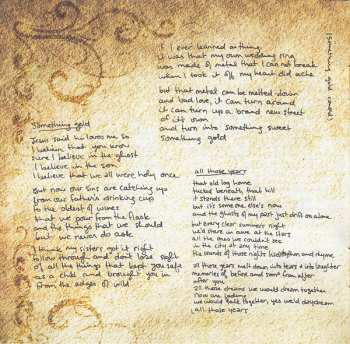 Something gold
Jesus said he loves me so
I believe that you know
sure I believe in the ghost
I believe in the son
I believe that we all were holy once
But now our sins are catching up
from our father's drinking cup
to the oldest of wines
that we pour from the flask
and the things that we should
but we never do ask
I think my sisters got it right
follow through and don't lose sight
of all the things that kept you safe
as a child and brought you in
from the edges of wild
(something gold contd.)
if I ever learned a thing
it was that my own wedding ring
was made of metal that I can not break
when I took it off my heart did ache
but that metal can be melted down
and bad love, it can turn around
it can turn up a brand new street
of it's own
and turn into something sweet
something gold
all those years
that old log home
tucked beneath that hill
it stands there still
but it's someone else's now
and the ghosts of my past just drift on alone
but every clear summer night
we'd there in awe at the stars
all the ones we couldn't see
in the city at any time
the sounds of those nights had rhythm and rhyme
all those years melt down into tears & into laughter
memories of before and some from after
after you
all those dreams we would dream together
now are fading
we would talk together, yes we'd daydream
all those years